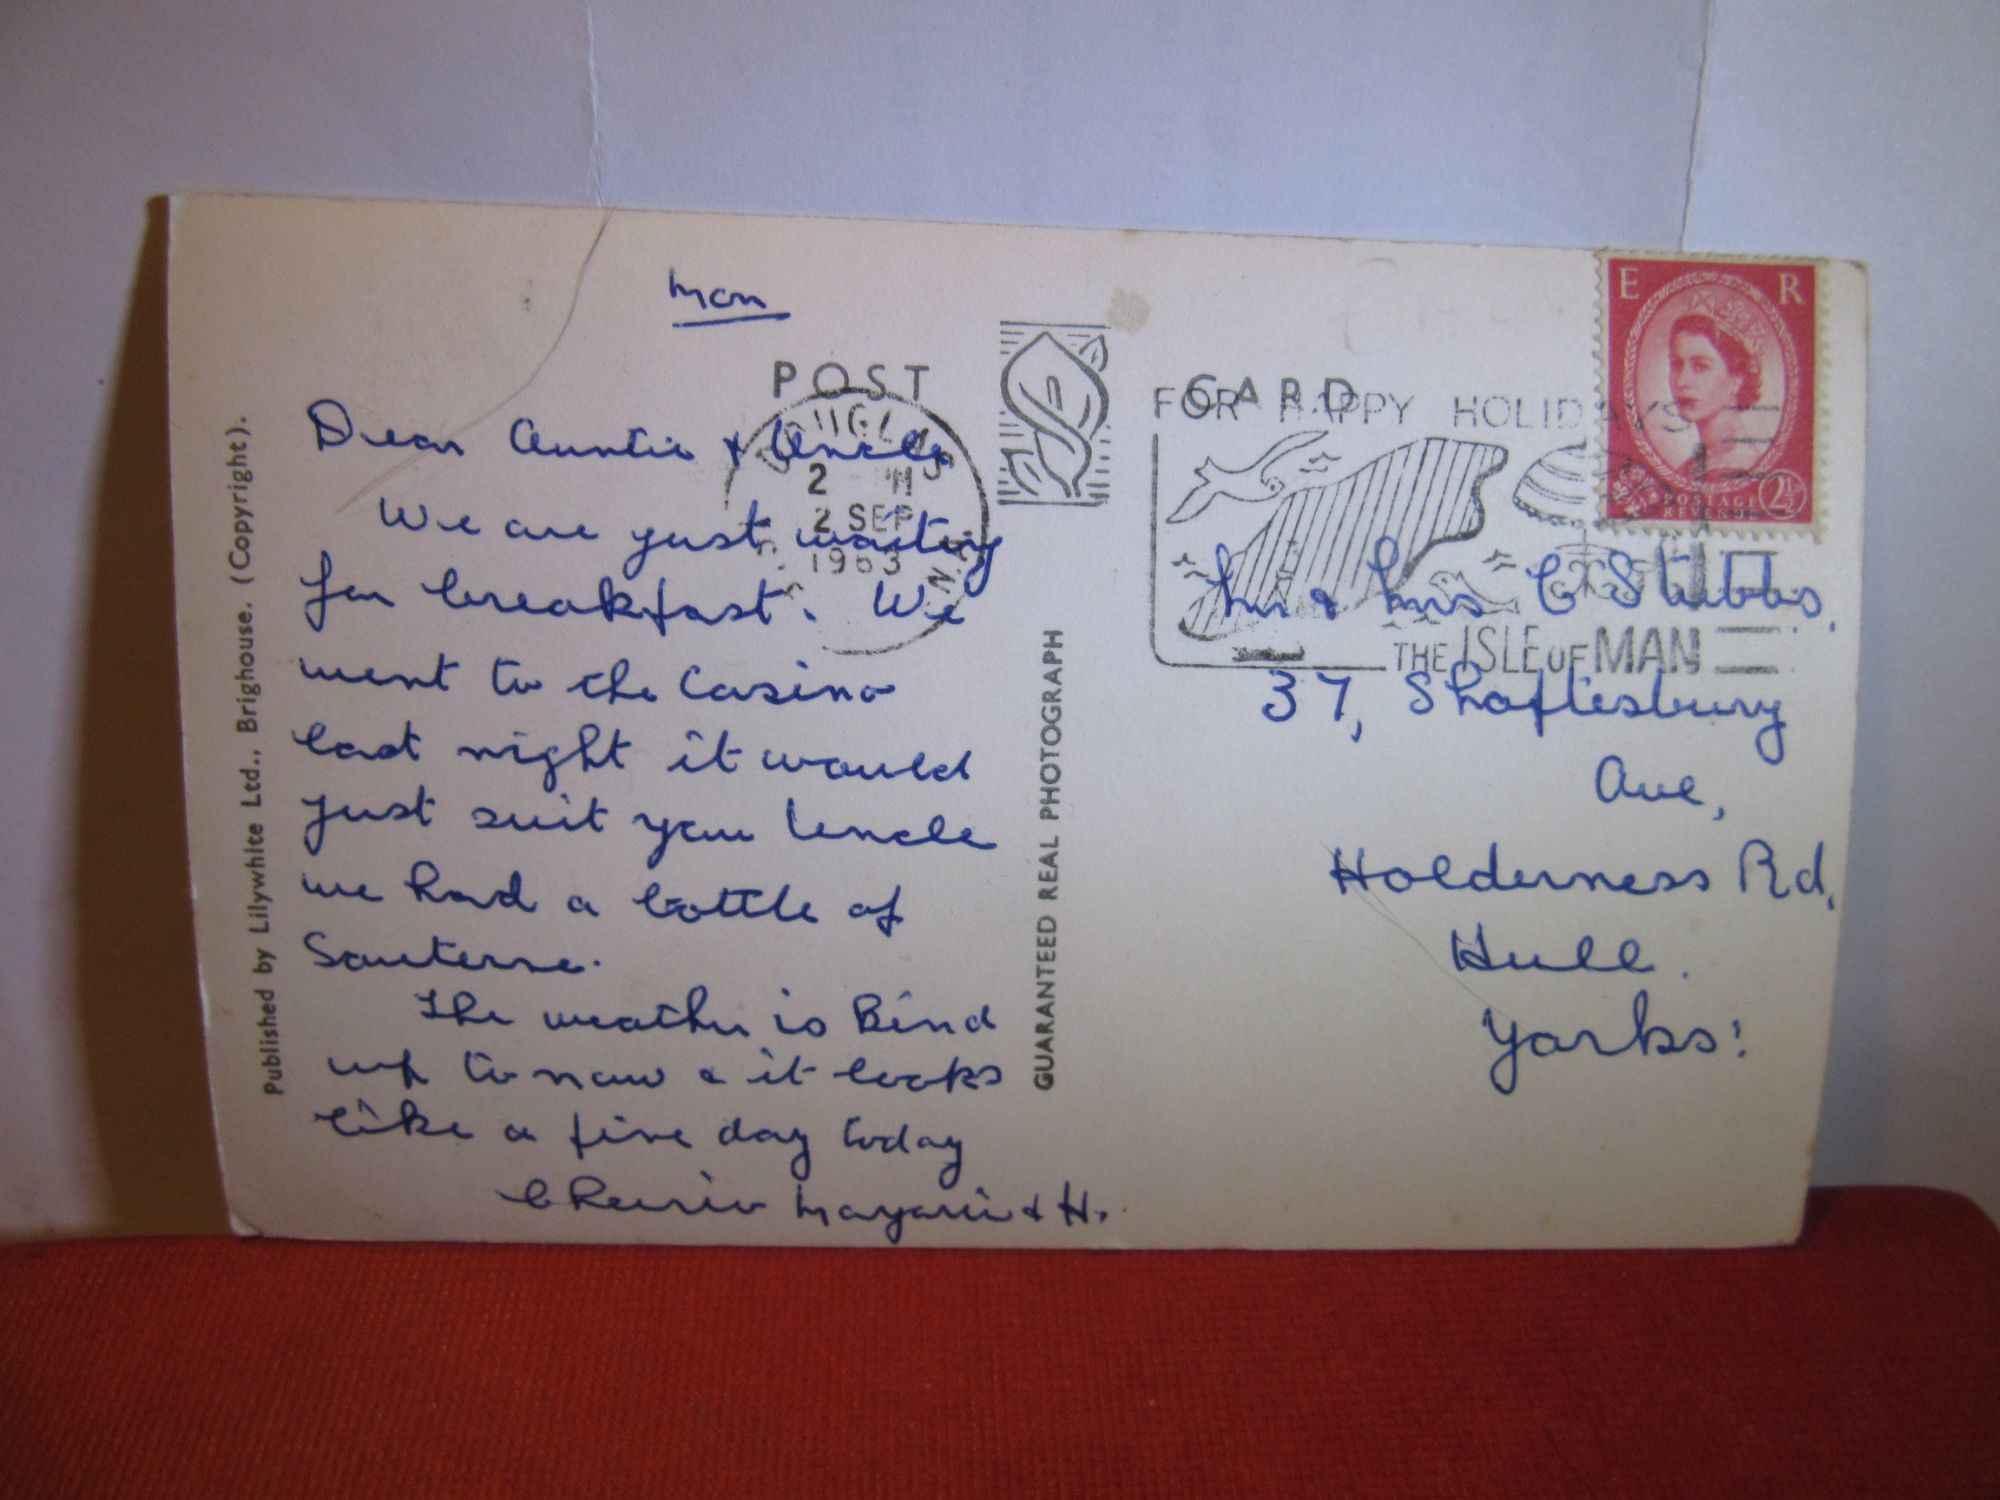 Mon
POST CARD
Dear Auntie & Uncle
We are just waiting
for breakfast. We
went to the Casino
last night it would
just suit you Uncle
we had a bottle of
Sauterne.
The weather is Bind
up to now & it looks
like a fine day today
Cheerio & H.
Published by Lilywhite Ltd., Brighouse. (Copyright).
GUARANTEED REAL PHOTOGRAPH
DOUGLAS
2 SEP
1963
FOR HAPPY HOLIDAYS
THE ISLE OF MAN
E R
POSTAGE
REVENUE
2½
Mr & Mrs C Stubbs,
37, Shaftesbury
Ave,
Holderness Rd,
Hull.
Yorks: